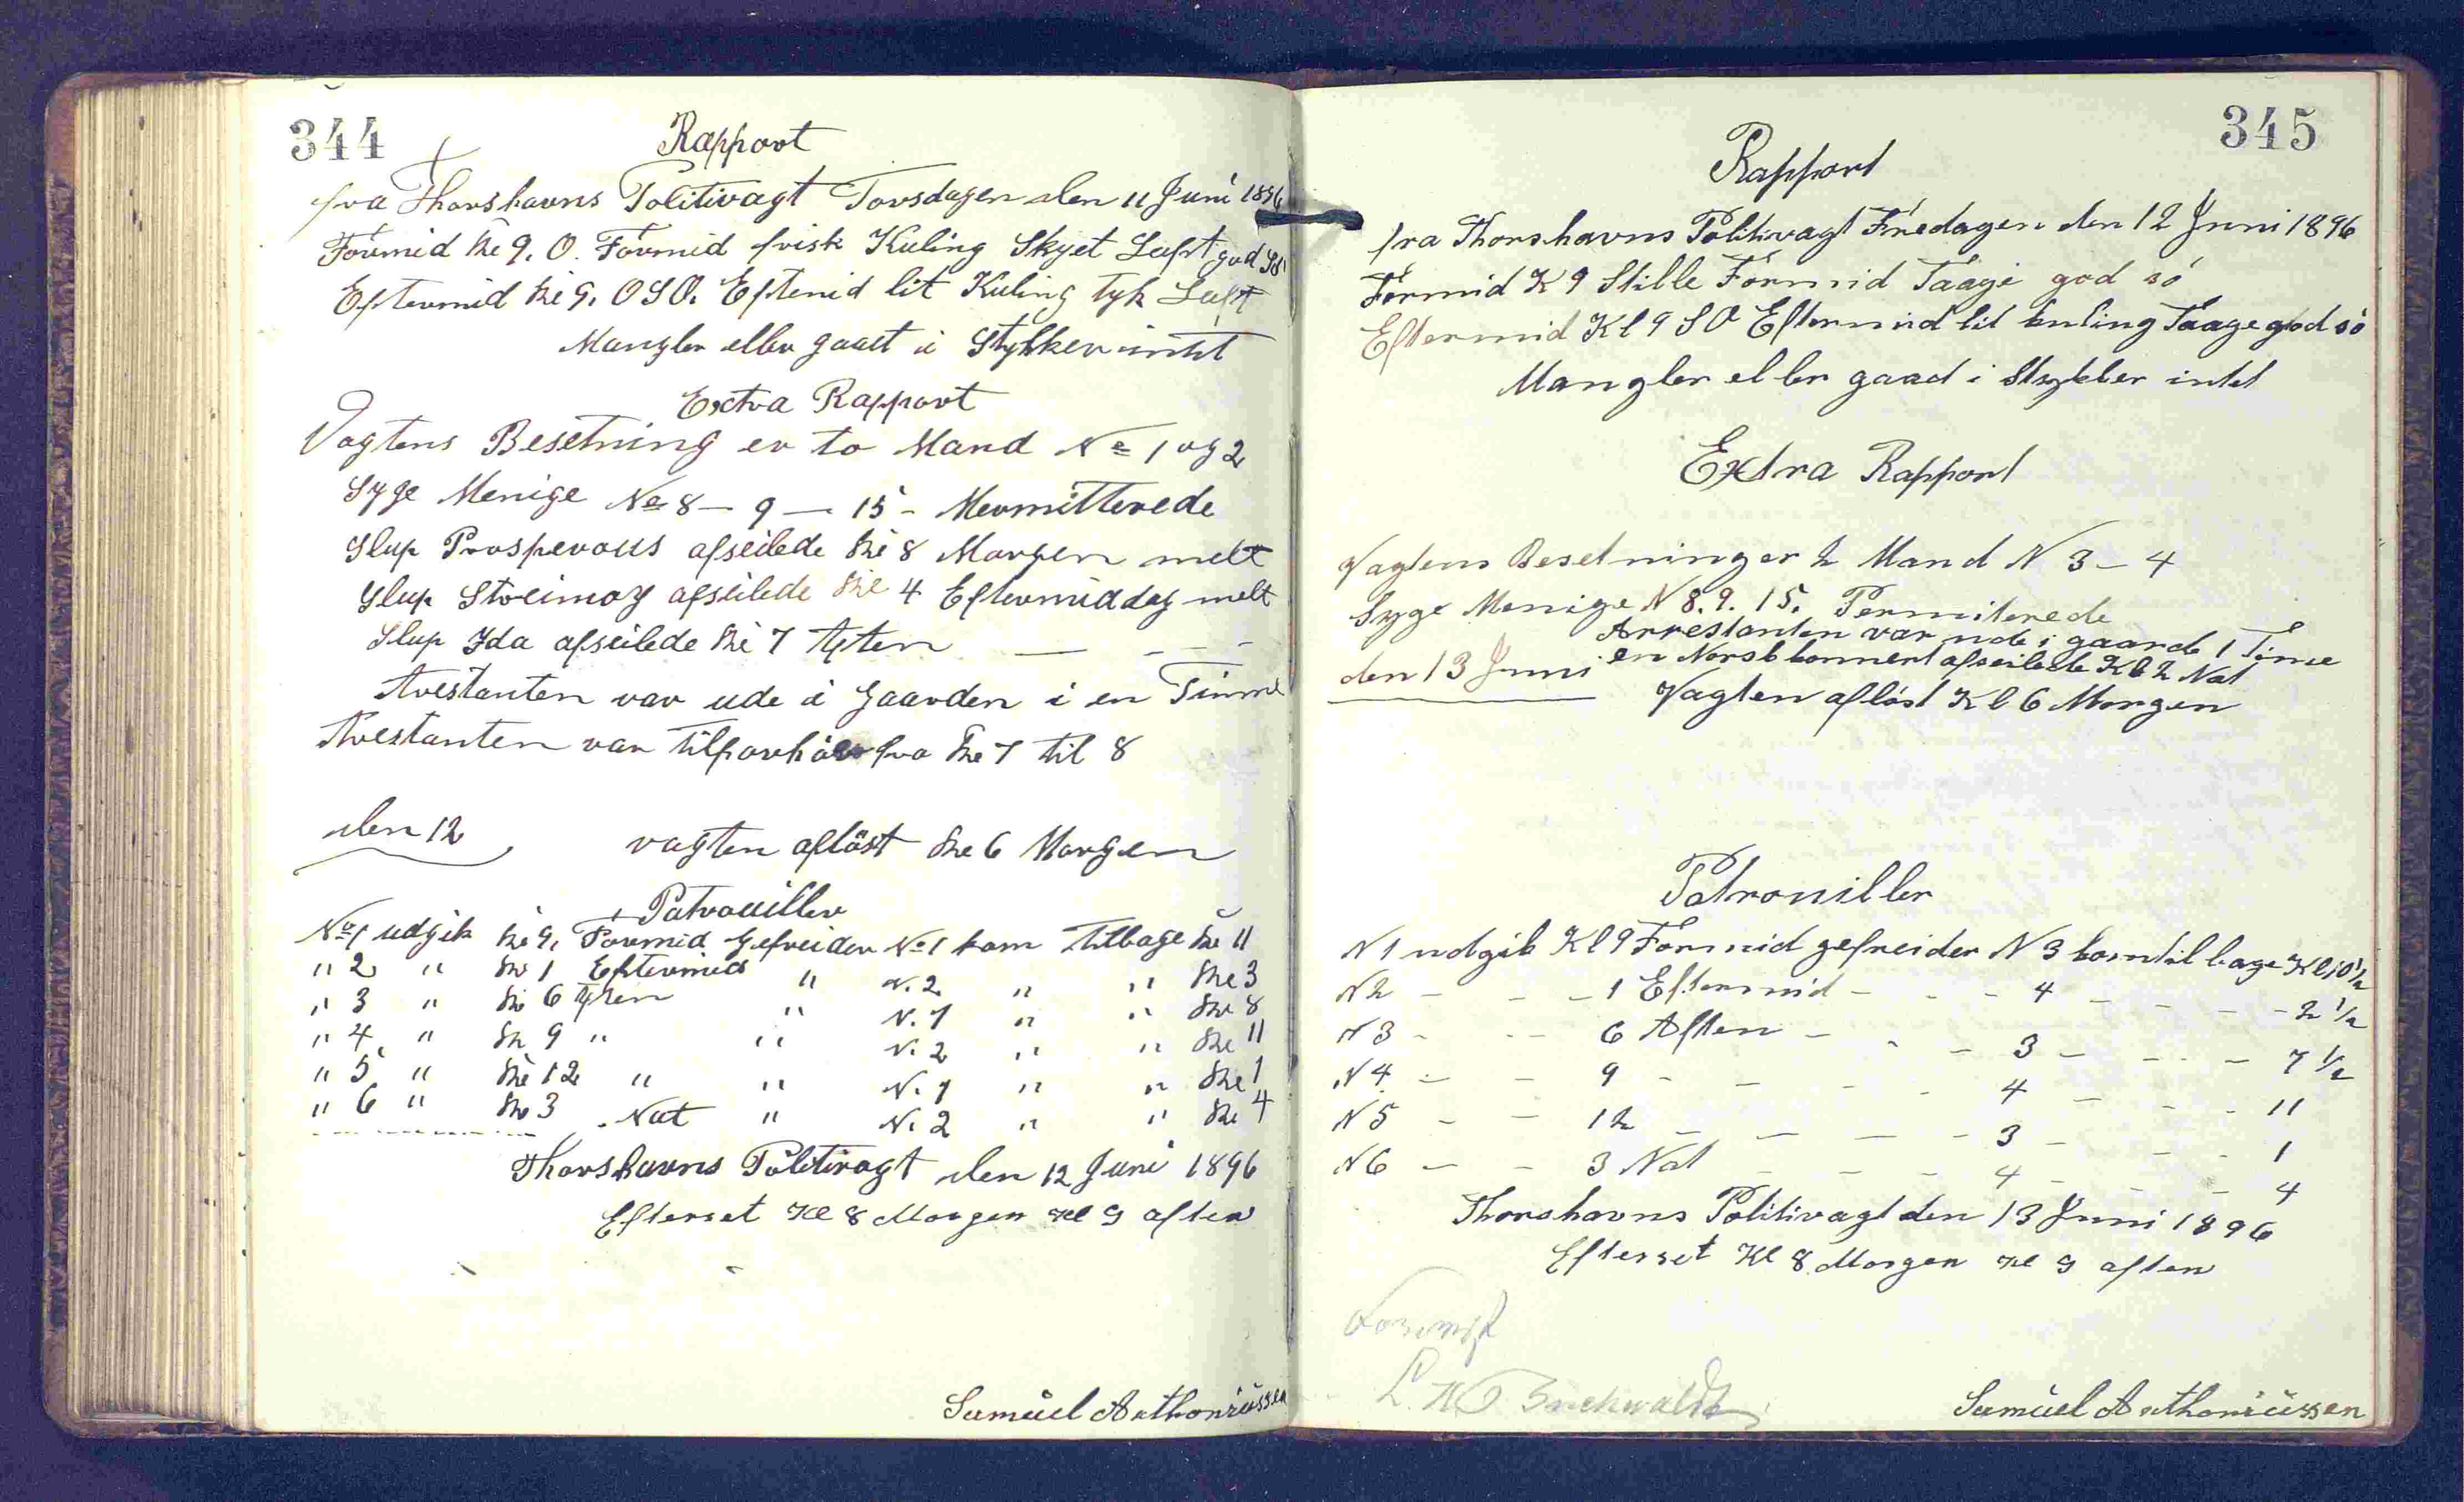 344
Rapport
fra Thorshavns Politivagt Torsdagen den 11 Juni 1896
Formid Kl 9. O. Formid frisk Kuling Skyet Luft god Sö
Eftermid Kl 9. OSO. Eftmid lit Kuling tyk Luft
Mangler eller gaaet i Stykker intet
Extra Rapport
Vagtens Besetning er to Mand No 1 og 2
Syge Menige No 8 — 9 — 15 - Mermitterede
Slup Prosperous afseilede Kl 8 Morgen melt
Slup Streimoy afseilede Kl 4 Eftermiddag melt
Slup Ida afseilede Kl 7 Aften — - - -
Arestanten var ude i Gaarden i en Timme
Arestanten var til fra Kl 7 til 8
den 12
vagten aflöst Kl 6 Morgen
Patrouiller
No 1 udgik Kl 9, Formid Gefreider No 1 kom Tilbage Kl 11
" 2 " Kl 1 Eftermid " N. 2 " " Kl 3
" 3 " Kl 6 Aften " N. 1 " " Kl 8
" 4 " Kl 9 " " N. 2 " " Kl 11
" 5 " Kl 12 " " N. 1 " " Kl 1
" 6 " Kl 3 Nat " N. 2 " " Kl 4
Thorshavns Politivagt den 12 Juni 1896
Efterset Kl 8 Morgen Kl 9 aften
Samuel Anthoniussen
345
Rapport
fra Thorshavns Politivagt Fredagen den 12 Juni 1896
Formid K 9 Stille Formid Taage god sö
Eftermid Kl 9 SO Eftermid lit kuling Taage god sö
Mangler eller gaad i Stykker intet
Extra Rapport
Vagtens Besetning er 2 Mand N 3 - 4
Syge Menige N 8. 9. 15. Permiterede
Arrestanten var ude i gaard 1 Time
den 13 Juni en Norsk afseilede Kl 2 Nat
Vagten aflöst Kl 6 Morgen
Patrouiller
N 1 udgik Kl 9 Formid gefreider N 3 kom tilbage Kl 10 1/2
N 2 - - - 1 Eftermid - - - 4 - - - - 2 1/2
N 3 - - - 6 Aften - - - 3 - - - - 7 1/2
N 4 - - 9 - - - - 4 - - - 11
N 5 - - 12 - - - - 3 - - - 1
N 6 - - 3 Nat - - - 4 - - - 4
Thorshavns Politivagt den 13 Juni 1896
Efterset Kl 8 Morgen Kl 9 aften
Buchwaldt
Samuel Anthoniussen